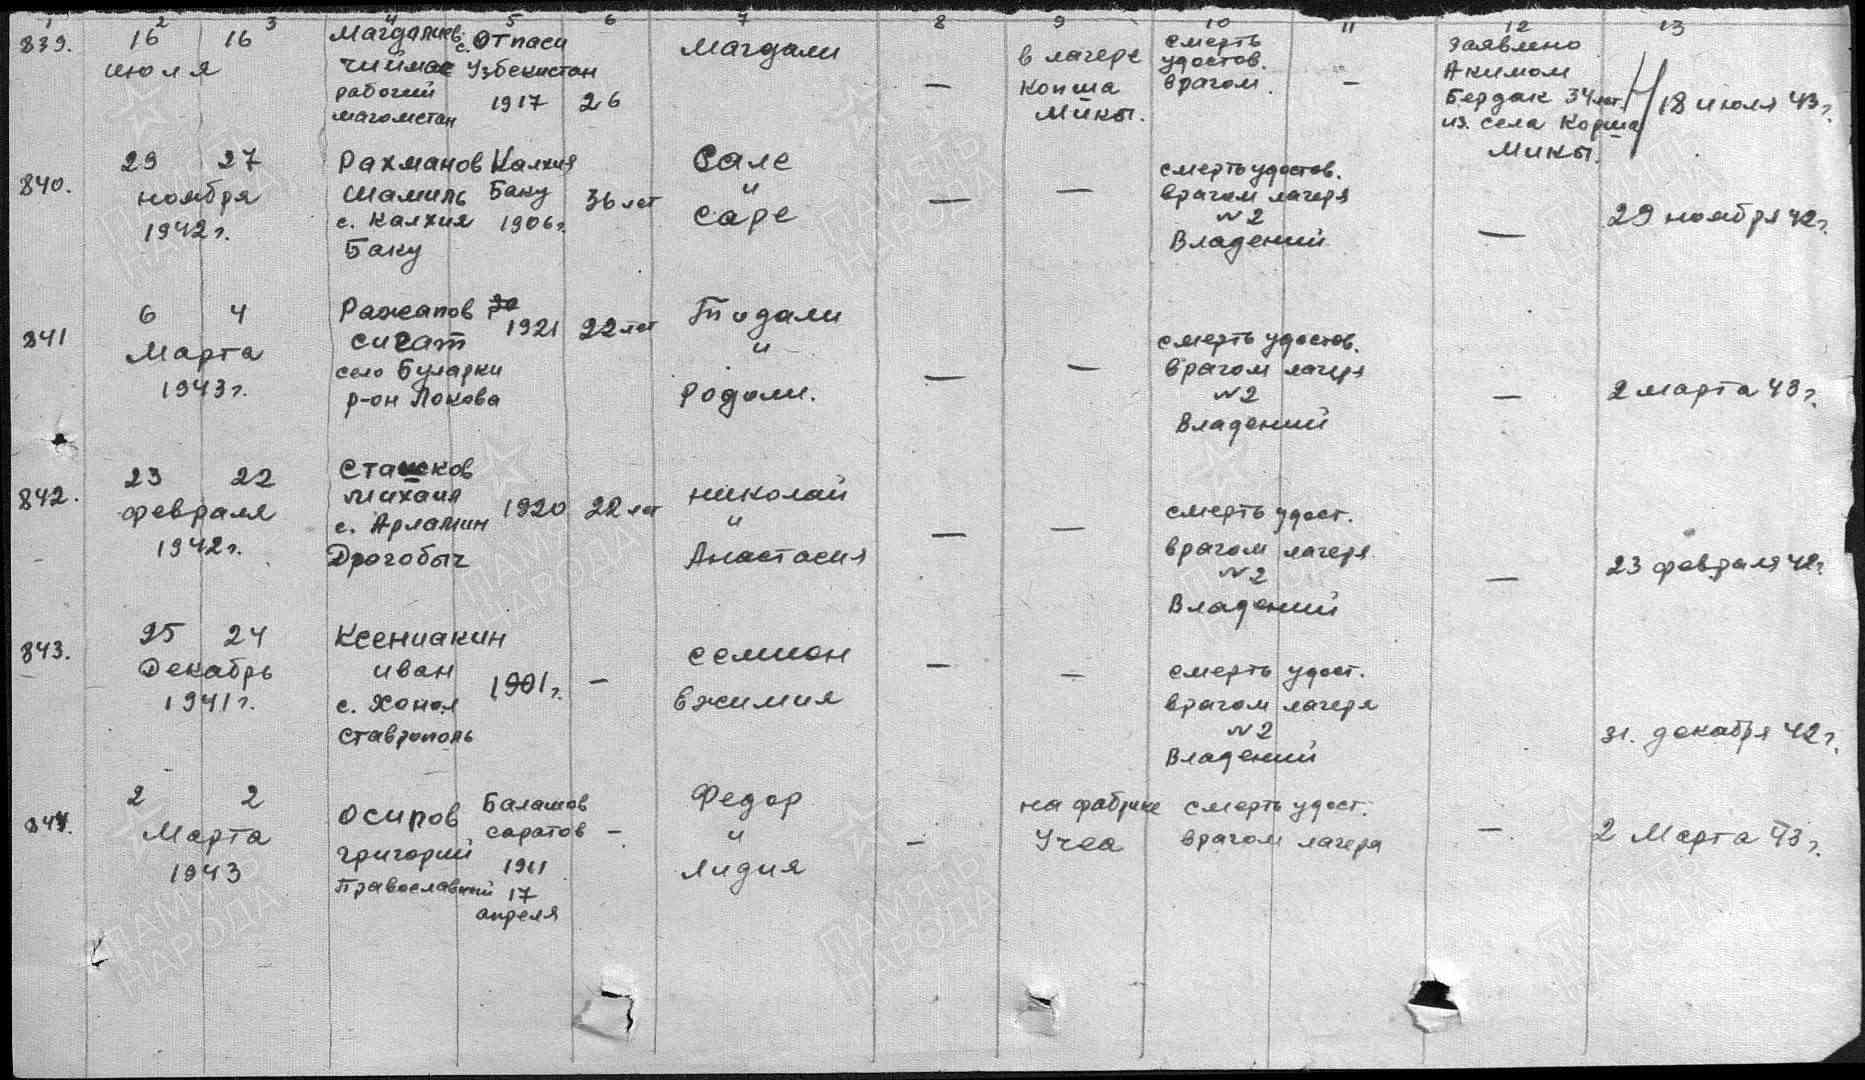 1 2 3 4 5 6 7 8 9 10 11 12 13
839. 16 16 июля
Магдалиев
чиймас
рабочий
магометан
с. Отпаси
Узбекистан
1917 26
Магдали
—
в лагере
Копша
Микы.
смерть
удостов.
врагом. —
Заявлено
Акимом
Бердак 34 лет.
из села Корша
Микы.
18 июля 43 г.
840. 29 27
ноября
1942 г.
Рахманов
Шамиль
с. Калхия
Баку
Калхия
Баку
1906 г.
36 лет
Сале
и
Саре
— —
смерть удостов.
врагом лагеря
№2
Владений
—
29 ноября 42 г.
841 6 4
Марта
1943 г.
Ражапов
сигат
село Буларки
р-он Локова
1921 22 лет
Тидали
и
Родоли.
— —
смерть удостов.
врагом лагеря
№2
Владений
—
2 марта 43 г.
842. 23 22
февраля
1942 г.
Михаил
с. Арламин
Дрогобыч
1920 22 лет
Николай
и
Анастасия
— —
смерть удост.
врагом лагеря
№2
Владений
—
23 февраля 42 г.
843. 25 24
Декабрь
1941 г.
Ксениакин
иван
с. Хонол
Ставрополь
1901 г. —
семион
вжимия
— —
смерть удост.
врагом лагеря
№2
Владений
31. декабря 42 г.
844. 2 2
Марта
1943
Осипов
григорий
Православный
Балашов
саратов
1911
17
апреля
—
Федор
и
Лидия
—
на фабрике
Учеа
смерть удост.
врагом лагеря
—
2 Марта 43 г.
ПАМЯТЬ
НАРОДА